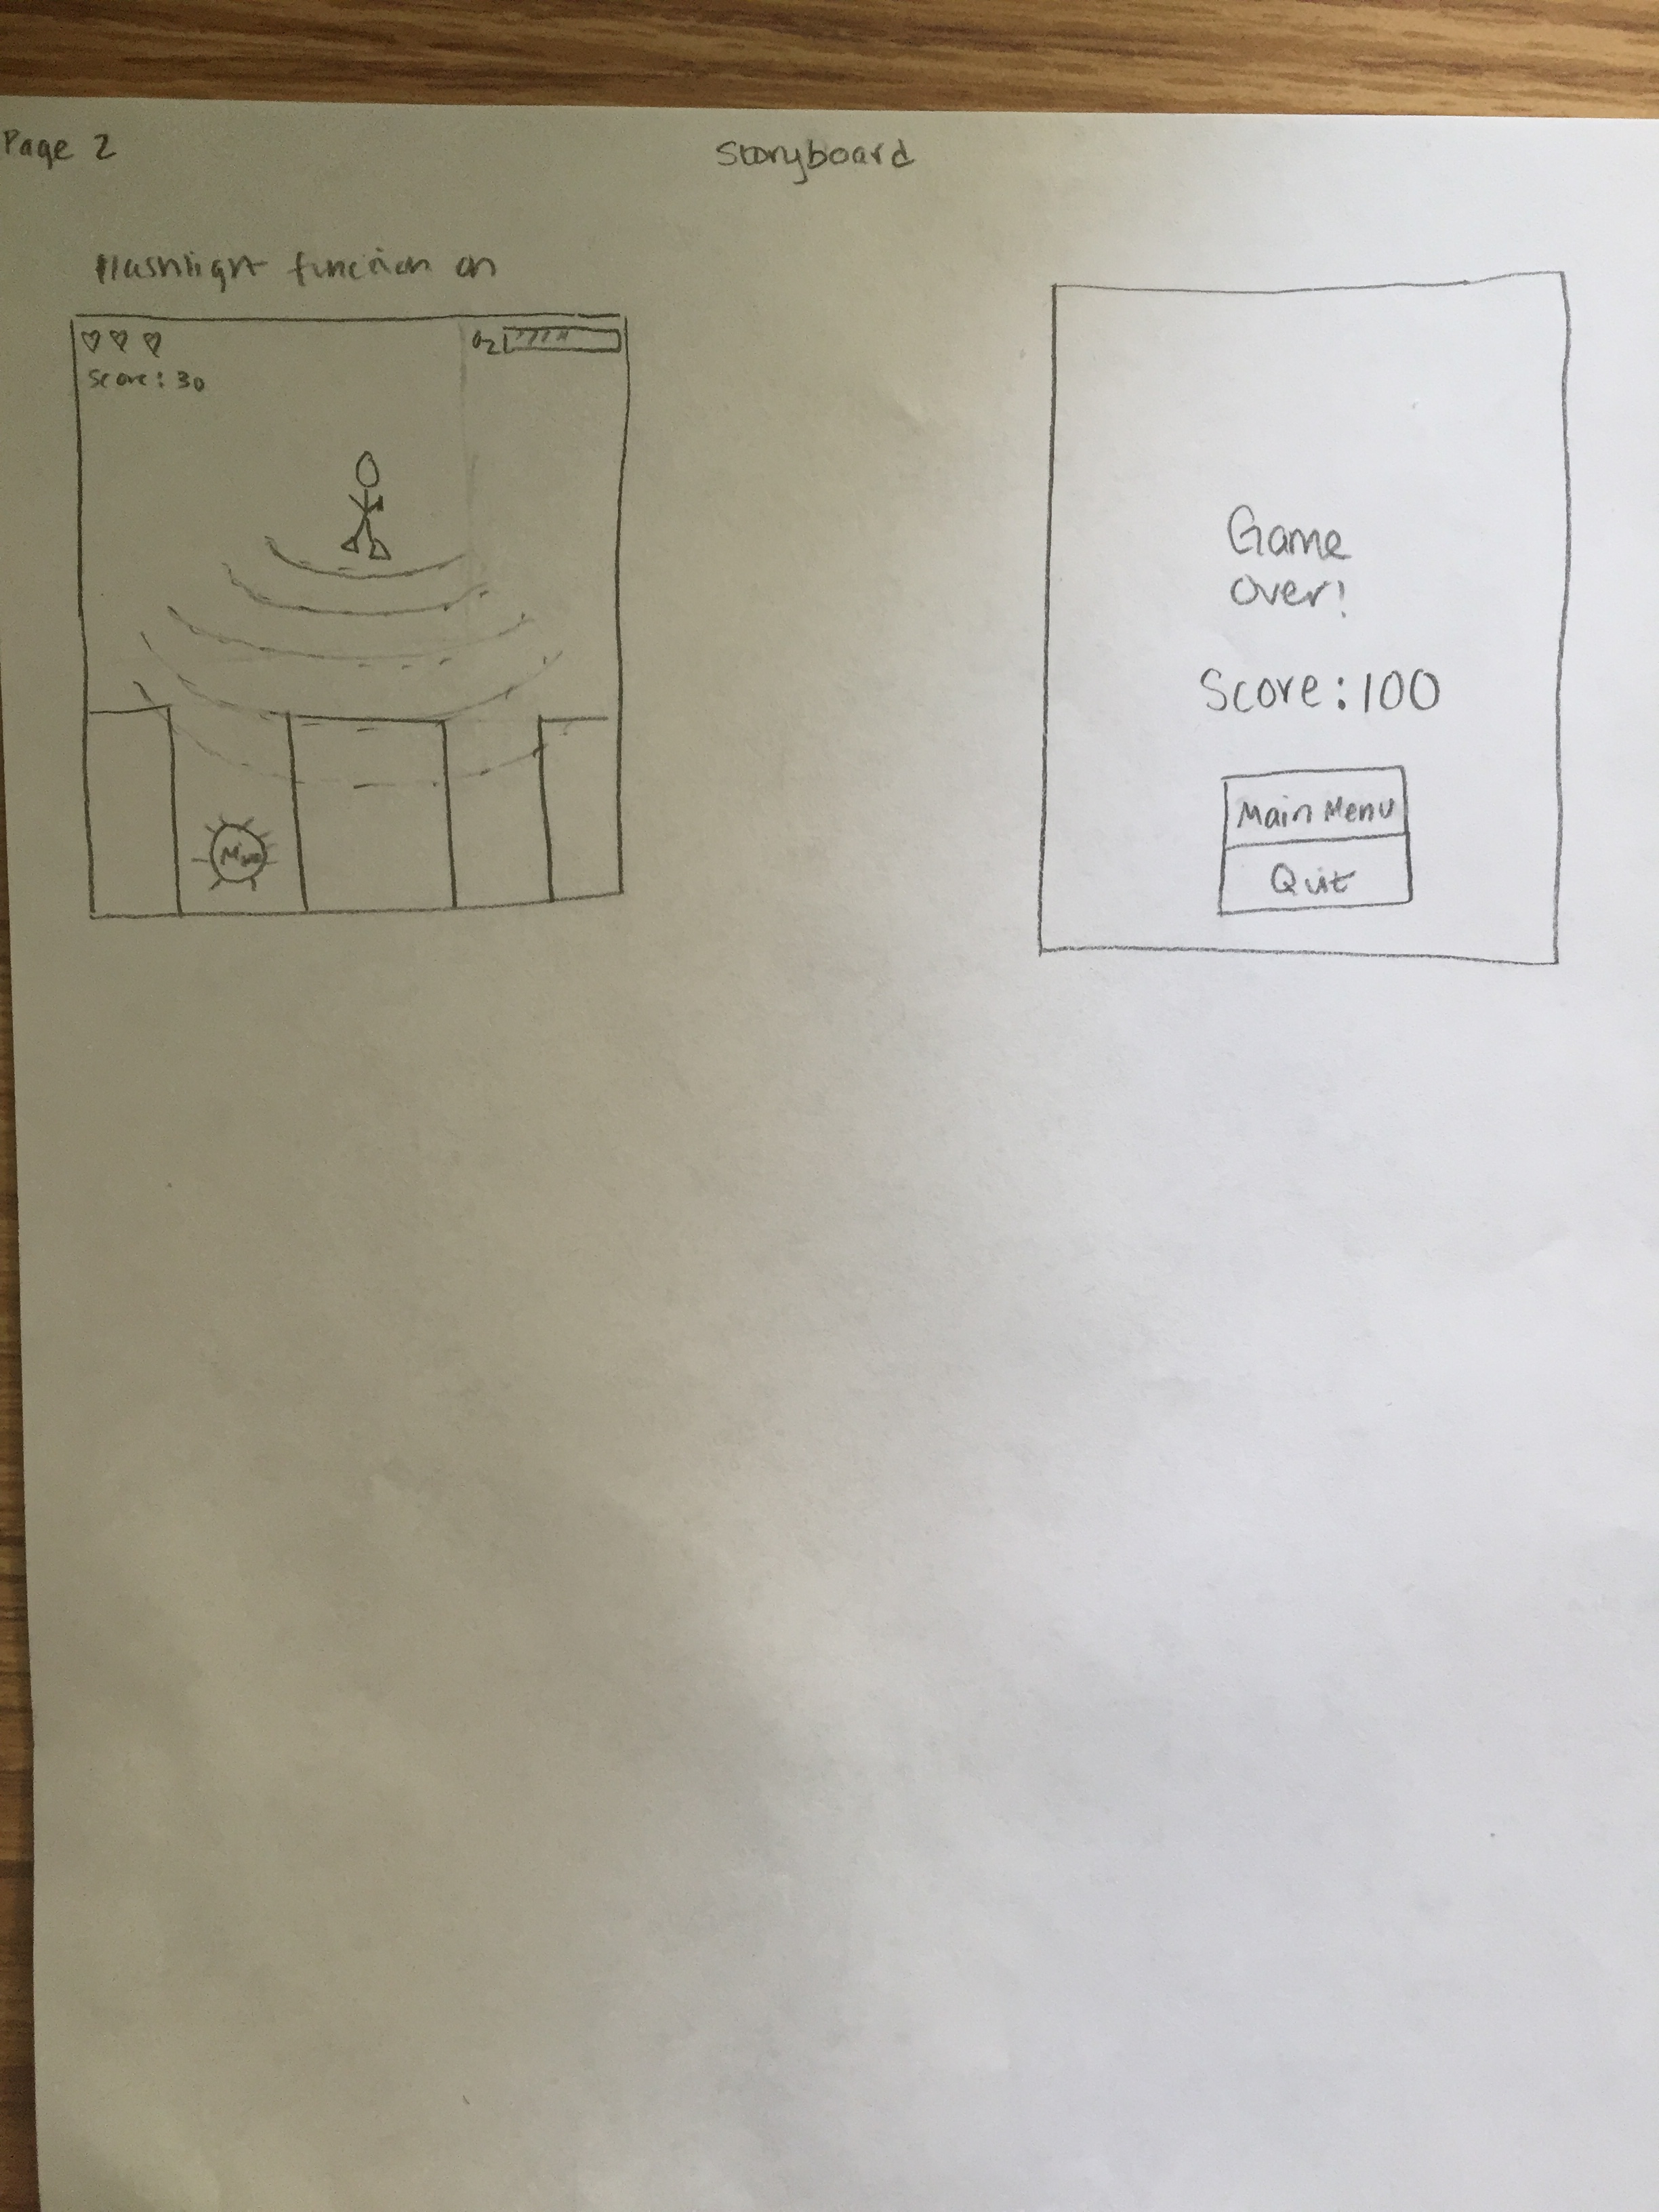 Page 2
Storyboard
Flashlight function on
O2
Score: 30
Mine
Game
Over!
Score: 100
Main Menu
Quit